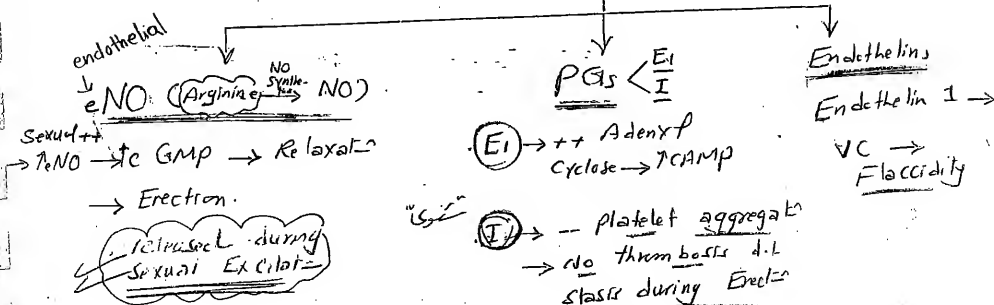 endothelial
eNO (Arginine NO Synthe- NO)
Sexual ++
→ ↑eNO → ↑c GMP → Relaxat-
→ Erection.
released during
Sexual Excitat-
PGIs < E1
I
E1 → ++ Adenyl
Cyclose → ↑CAMP
I → -- Platelet aggregat-
→ No thrombosis d.t
stasis during Erect-
Endothelins
Endothelin 1 →
VC →
Flaccidity